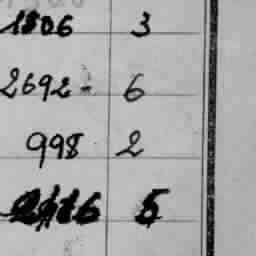 1806 3
2692 - 6
998 2
5